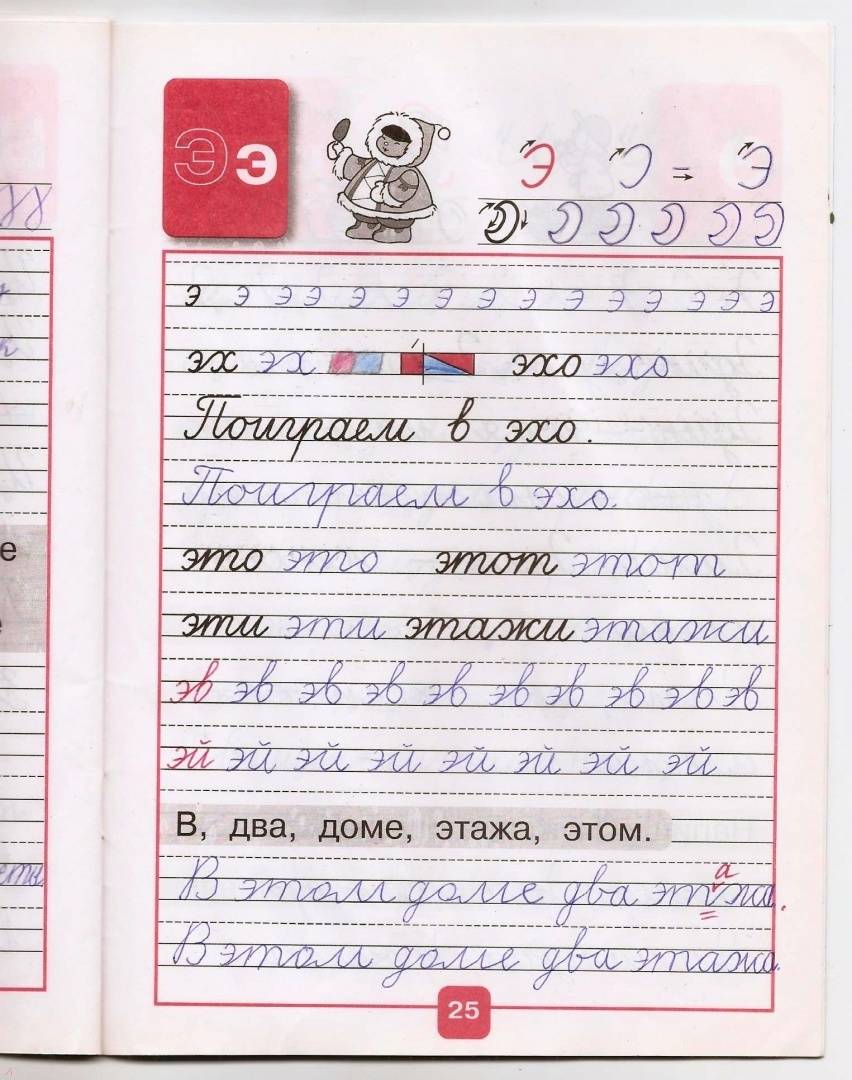 Э э
Э = Э
э э э э э э э э э э э э э э э
эх эх эхо эхо
Поиграем в эхо.
Поиграем в эхо.
это это этот этот
эти эти этажи этажи
эв эв эв эв эв эв эв эв эв эв
эй эй эй эй эй эй эй эй
В, два, доме, этажа, этом.
а
В этом доме два этжа.
В этом доме два этажа.
25